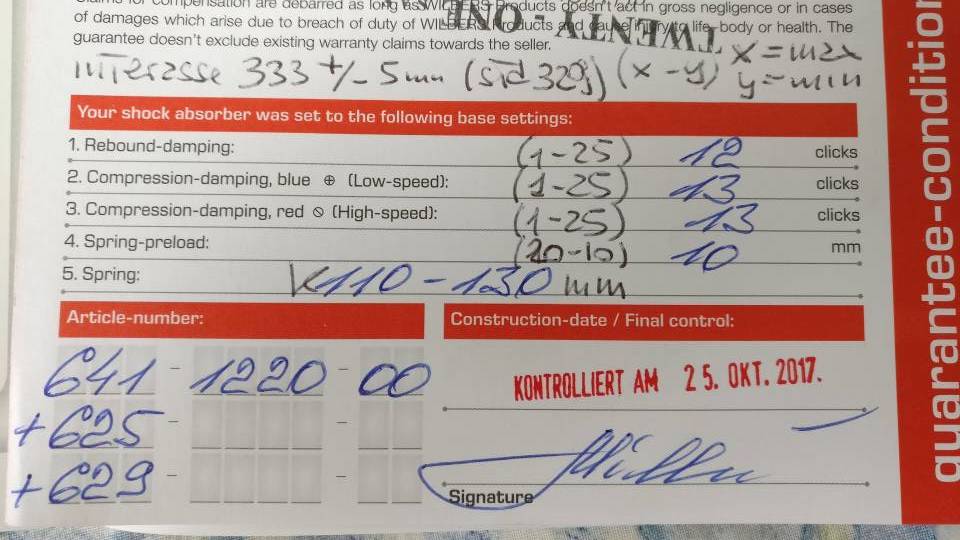 Claims for compensation are debarred as long as WILBERS Products doesn't act in gross negligence or in cases
of damages which arise due to breach of duty of WILBERS Products and cause injury to life, body or health. The
guarantee doesn't exclude existing warranty claims towards the seller.
TWENTY - ONE
interasse 333 +/- 5mm (std 329) (x - y) x = max
y = min
Your shock absorber was set to the following base settings:
1. Rebound-damping: (1-25) 12 clicks
2. Compression-damping, blue ⊕ (Low-speed): (1-25) 13 clicks
3. Compression-damping, red ⦸ (High-speed): (1-25) 13 clicks
4. Spring-preload: (20-10) 10 mm
5. Spring: K110-130 mm
Article-number: Construction-date / Final control:
641 - 1220 - 00 KONTROLLIERT AM 25. OKT. 2017.
+625 - -
+629 - -
Signature
guarantee-condition